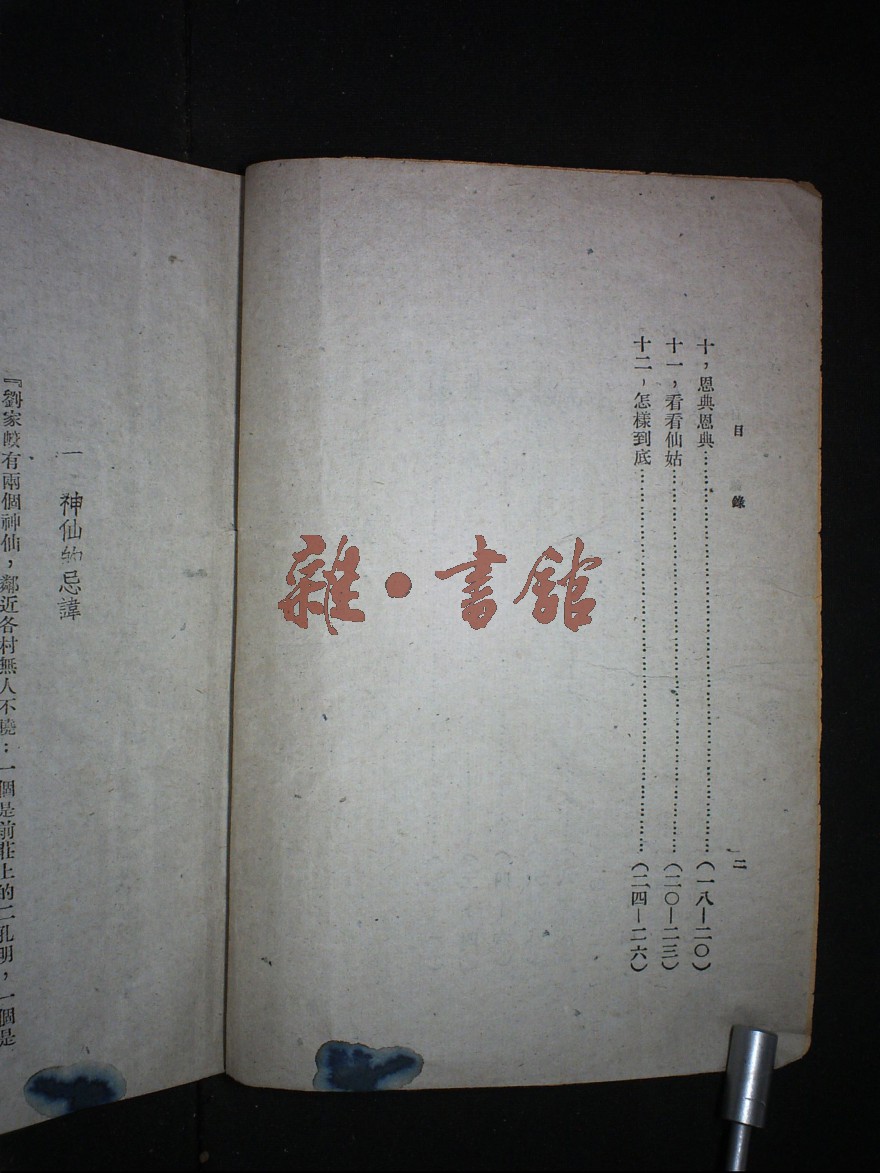 目錄
二
十，恩典恩典……(一八—二〇)
十一，看看仙姑……(二〇—二三)
十二，怎樣到底……(二四—二六)
雜·書館
一 神仙的忌諱
『劉家峧有兩個神仙，鄰近各村無人不曉；一個是前莊上的二孔明，一個是